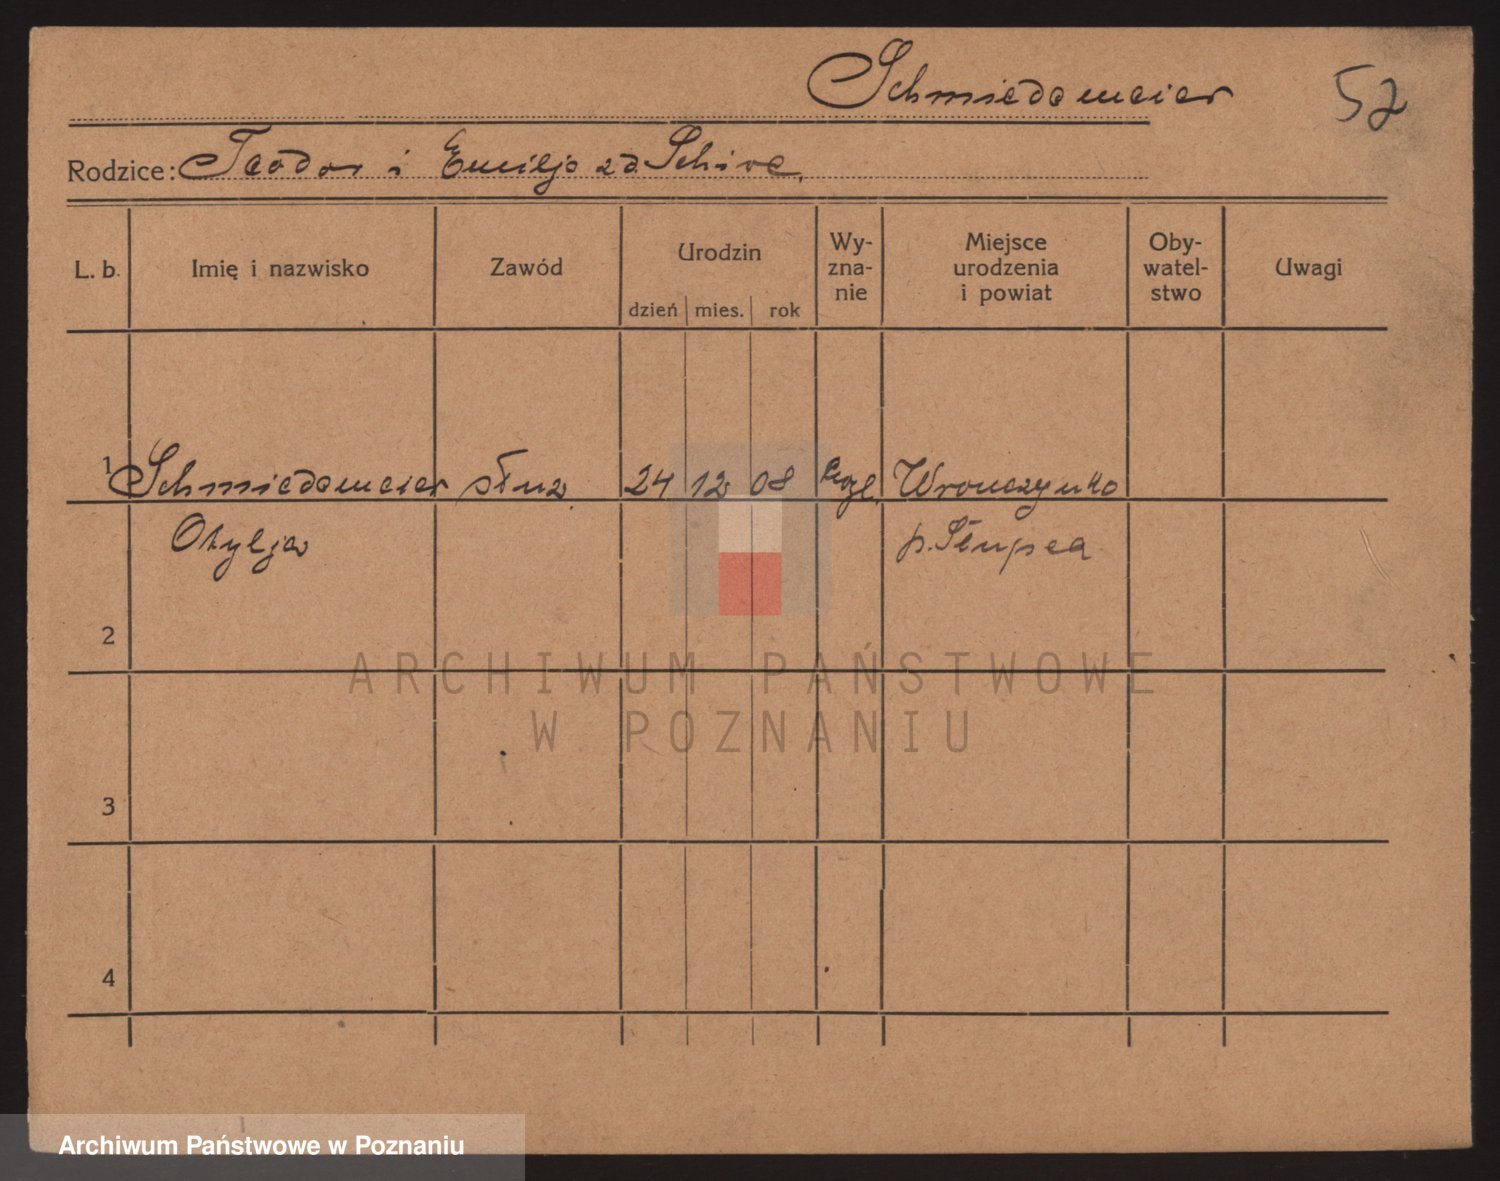 Schmiedemeier 52
Rodzice: Teodor i Emilja zd. Schive.
L. b. Imię i nazwisko Zawód Urodzin dzień mies. rok Wy-zna-nie Miejsce urodzenia i powiat Oby-watel-stwo Uwagi
1 Schmiedemeier służ. 24 12 08 Wronczynko
Otylja p. Słupca
2
3
4
ARCHIWUM PAŃSTWOWE
W POZNANIU
Archiwum Państwowe w Poznaniu